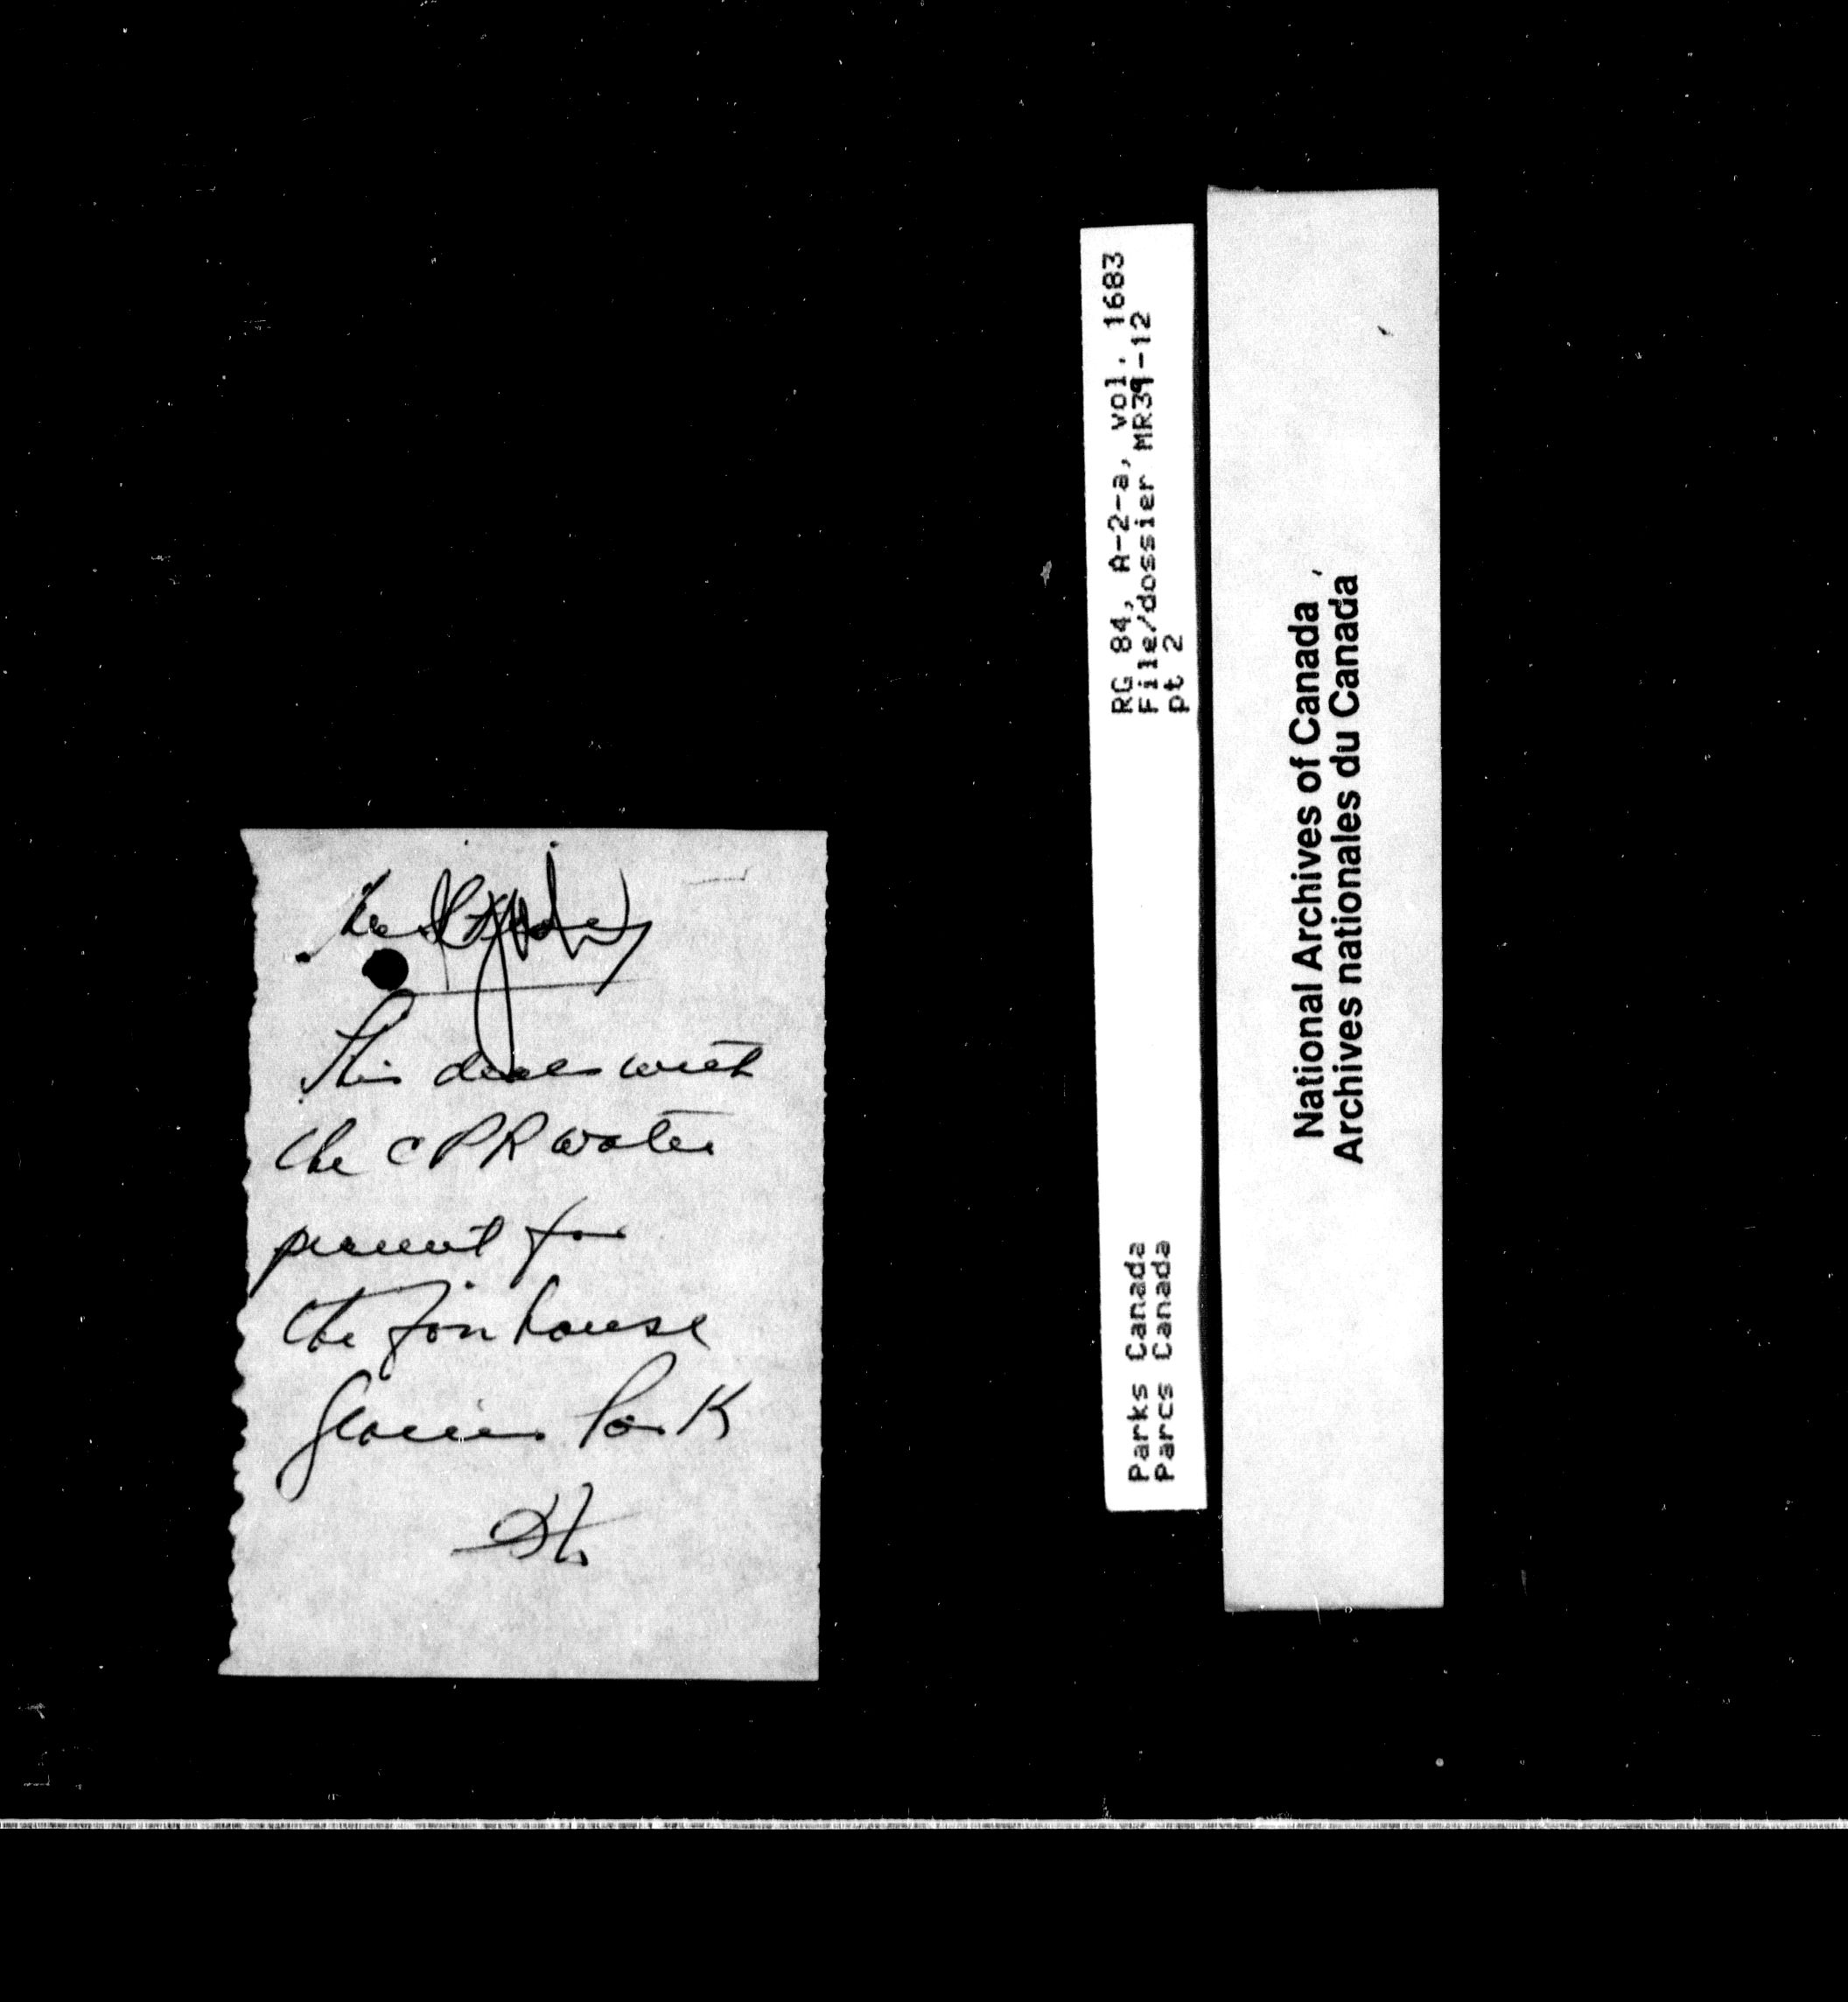 This deals with
the CPR water
permit for
the for house
Glacier Park
RG 84, A-2-a, vol. 1683
File/dossier MR39-12
pt 2
Parks Canada
Parcs Canada
National Archives of Canada
Archives nationales du Canada